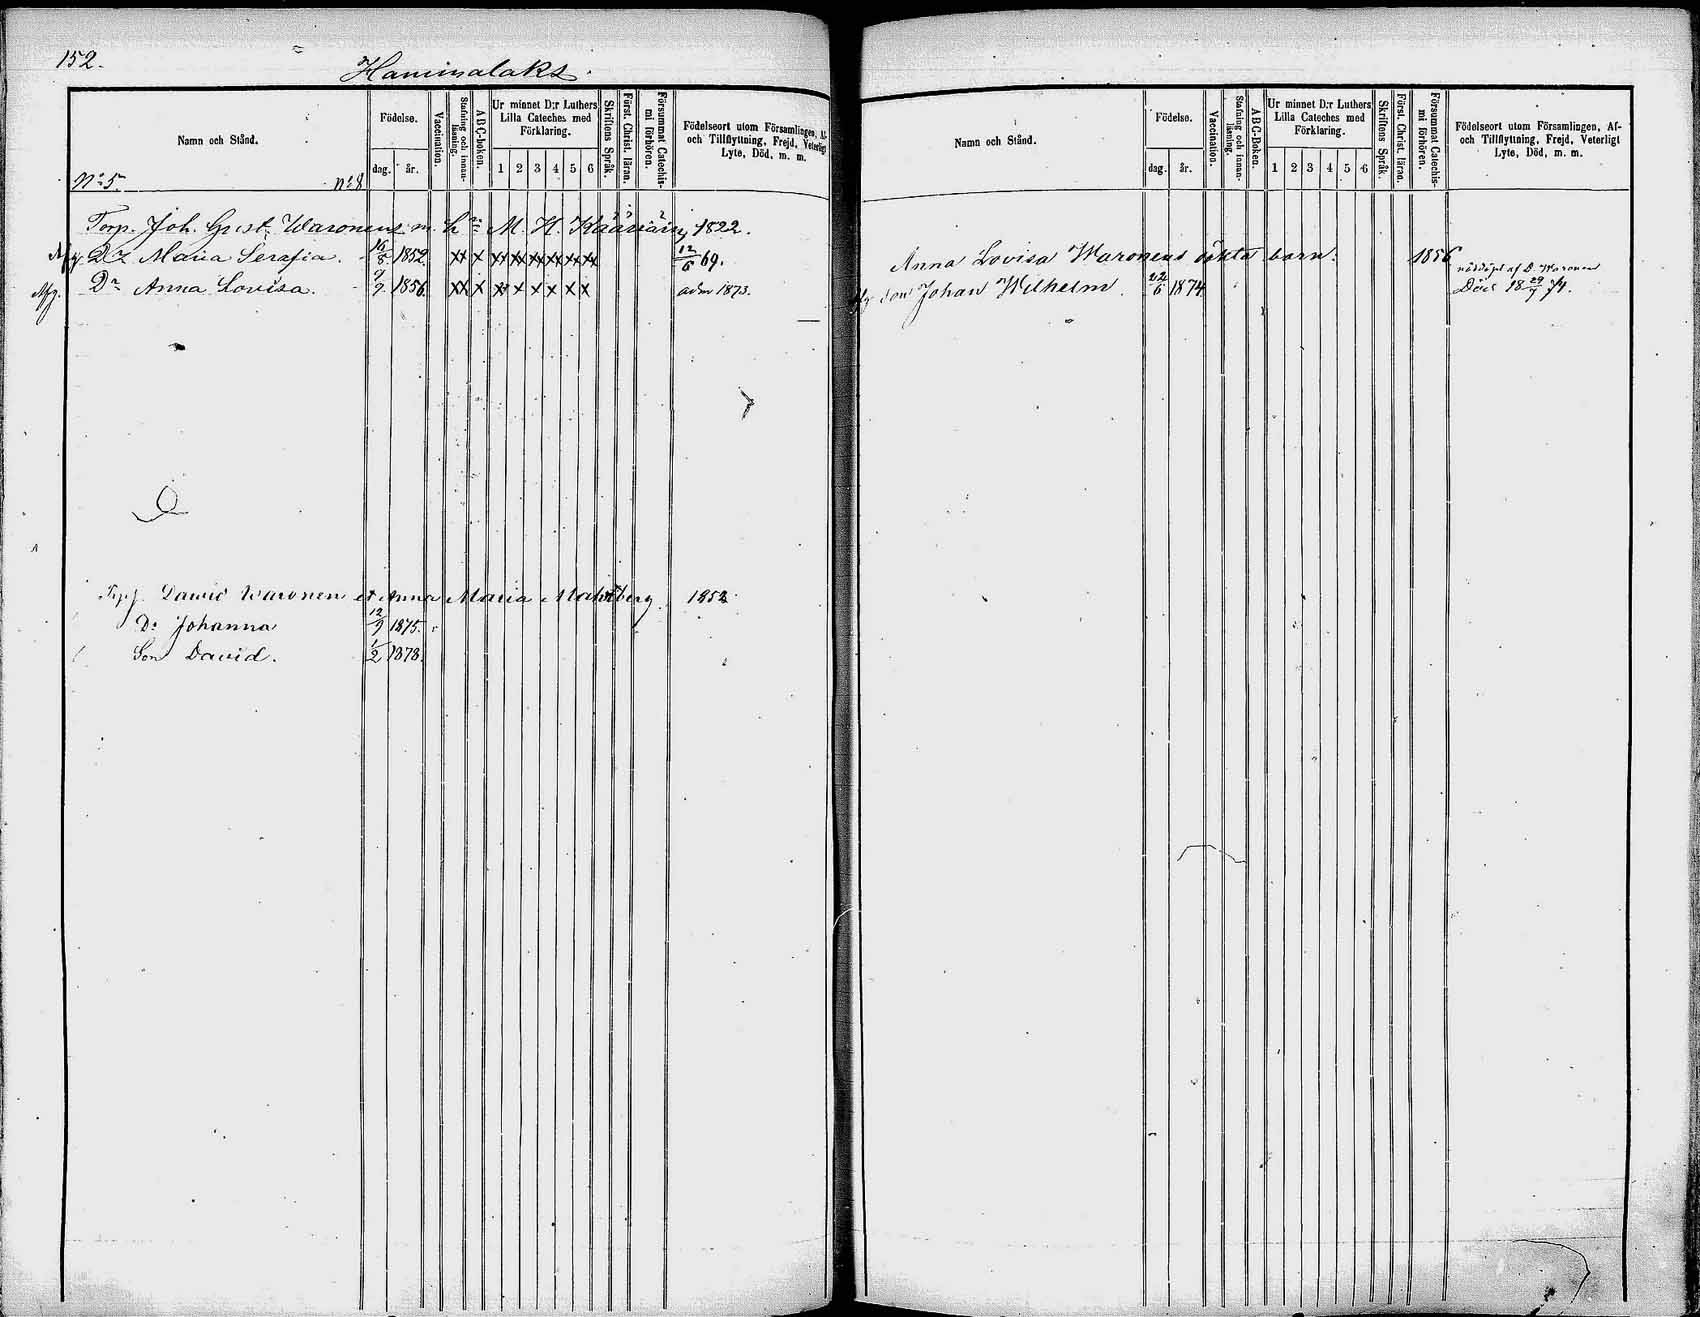 152.
Haminalaks.
Namn och Stånd.
Födelse.
dag. år.
Vaccination.
Stafning och innanläsning.
ABC-boken.
Ur minnet D:r Luthers Lilla Cateches med Förklaring.
1 2 3 4 5 6
Skriftens Språk.
Först. Christ. läran.
Försummat Catechismi förhören.
Födelseort utom Församlingen, Af- och Tillflyttning, Frejd, Veterligt Lyte, Död, m. m.
No 5. No 8
Torp. Joh. Gust. Waronens m. h:n M. H. Kääriäin, 1822.
Dr Maria Serafia. 16/8 1852. xx x xx xx xx xx xx xx 12/6 69.
Afg. Dr Anna Lovisa. 9/9 1856. xx x xx x x x x x adm 1873.
David Waronen et Anna Maria Mahlberg. 1852.
Dr Johanna 12/9 1875.
Son David. 1/2 1878.
Namn och Stånd.
Födelse.
dag. år.
Vaccination.
Stafning och innanläsning.
ABC-Boken.
Ur minnet D:r Luthers Lilla Cateches med Förklaring.
1 2 3 4 5 6
Skriftens Språk.
Först. Christ. läran.
Försummat Catechismi förhören.
Födelseort utom Församlingen, Af- och Tillflyttning, Frejd, Veterligt Lyte, Död, m. m.
Anna Lovisa Waronens oäkta barn. 1856
nöddöpt af D. Waronen
Son Johan Wilhelm. 22/6 1874 Död 18 29/7 74.